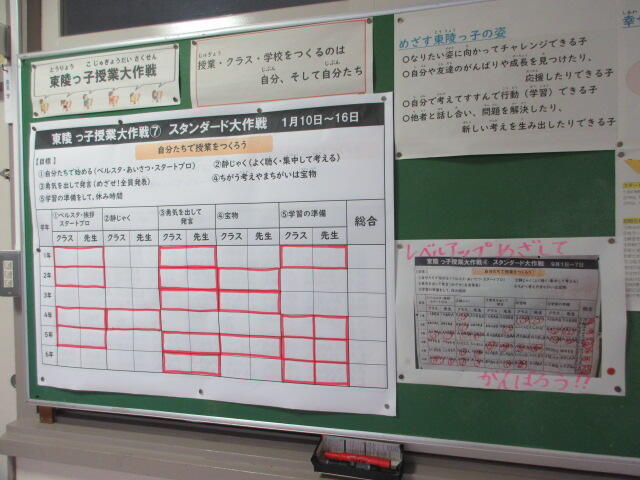 とうりょう こ じゅぎょうだい さくせん
東陵っ子授業大作戦
じゅぎょう
授業・クラス・学校をつくるのは
じぶん じぶん
自分、そして自分たち
めざす東陵っ子の姿
○なりたい姿に向かってチャレンジできる子
○自分や友達のがんばりや成長を見つけたり、
応援したりできる子
○自分で考えてすすんで行動(学習)できる子
○他者と話し合い、問題を解決したり、
新しい考えを生み出したりできる子
東陵っ子授業大作戦⑦ スタンダード大作戦 1月10日~16日
自分たちで授業をつくろう
【目標】
①自分たちで始める(ベルスタ・あいさつ・スタートプロ) ②静じゃく(よく聴く・集中して考える)
③勇気を出して発言(めざせ!全員発表) ④ちがう考えやまちがいは宝物
⑤学習の準備をして、休み時間
学年 ①ベルスタ・挨拶 スタートプロ ②静じゃく ③勇気を出して 発言 ④宝物 ⑤学習の準備 総合
クラス 先生 クラス 先生 クラス 先生 クラス 先生 クラス 先生
1年
2年
3年
4年
5年
6年
レベルアップめざして
東陵っ子授業大作戦④ スタンダード大作戦
自分たちで授業をつくろう
がんばろう!!